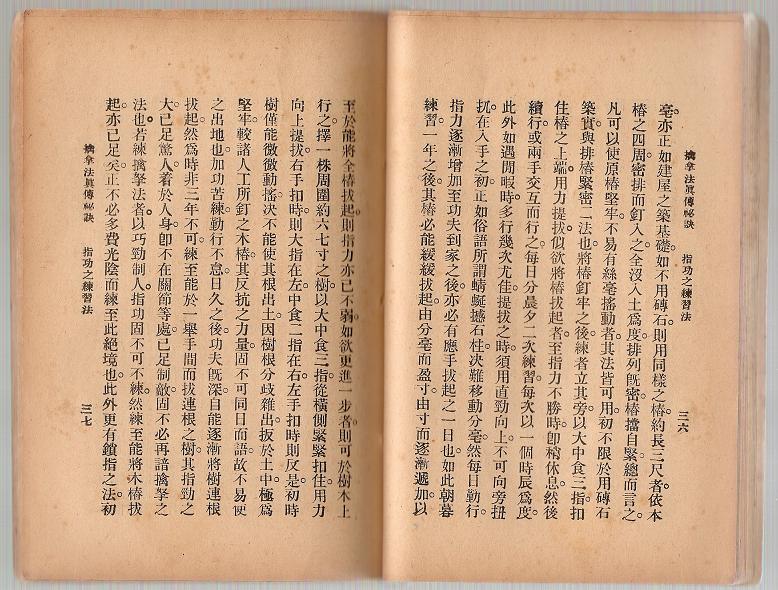 擒拿法眞傳祕訣　指功之練習法　三六
亳。亦正如建屋之築基礎。如不用磚石。則用同樣之樁。約長三尺者。依本
樁之四周密排而釘入之。全沒入土爲度。排列旣密。樁擋自緊。總而言之。
凡可以使原樁堅牢。不易有絲亳搖動者。其法皆可用。初不限於用磚石
築實。與排樁緊密二法也。將樁釘牢之後。練者立其旁。以大中食三指。扣
住樁之上端。用力提拔。似欲將樁拔起者。至指力不勝時。卽稍休息。然後
續行。或兩手交互而行之。每日分晨夕二次練習。每次以一個時辰爲度。
此外如遇閒暇時。多行幾次尤佳。提拔之時。須用直勁向上。不可向旁扭
扤。在入手之初。正如俗語所謂蜻蜒撼石柱。决難移動分亳。然每日勤行。
指力逐漸增加。至功夫到家之後。亦必有應手拔起之一日也。如此朝暮
練習。一年之後。其樁必能緩緩拔起。由分亳而盈寸。由寸而逐漸遞加。以
至於能將全樁拔起。則指力亦已不弱。如欲更進一步者。則可於樹木上
行之。擇一株周圍約六七寸之樹。以大中食三指。從橫側緊緊扣住。用力
向上提拔。右手扣時。則大指在左。中食二指在右。左手扣時則反是。初時
樹僅能微微動搖。决不能使其根出土。因樹根分歧雜出。扳於土中。極爲
堅牢。較諸人工所釘之木樁。其反抗之力量。固不可同日而語。故不易便
之出地也。加功苦練。勤行不怠。日久之後。功夫旣深。自能逐漸將樹連根
拔起。然爲時非三年不可。練至能於一舉手間而拔連根之樹。其指勁之
大。已足驚人。着於人身。卽不在關節等處。已足制敵。固不必再諳擒拏之
法也。若練擒拏法者。以巧勁制人。指功固不可不練。然練至能將木樁拔
起。亦已足矣。正不必多費光陰而練至此絕境也。此外更有鎖指之法。初
擒拿法眞傳祕訣　指功之練習法　三七